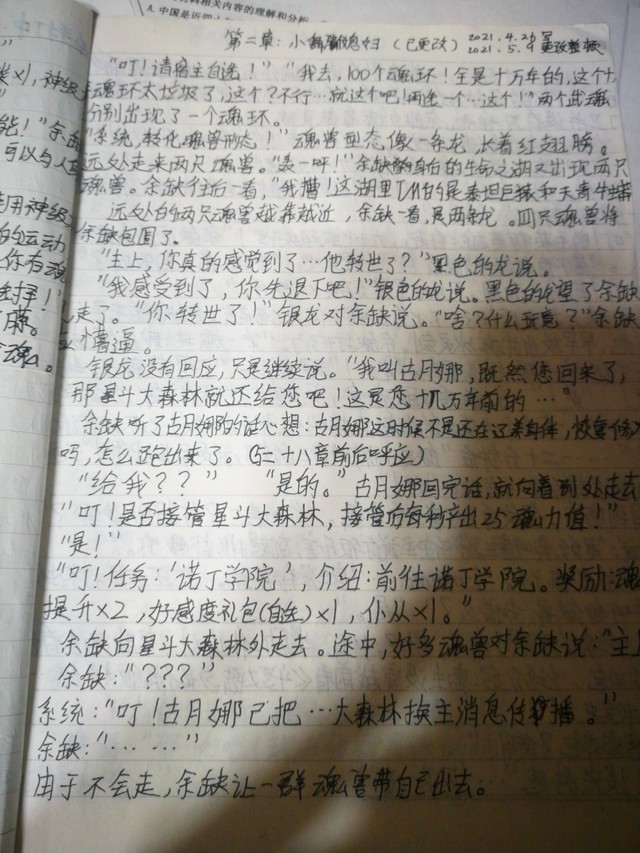 相关内容的理解和分析
A.中国是近四
第二章：小 媳妇（已更改）
2021.4.26写
2021.5.9更改整板
“叮！请宿主自选！”“我去，100个魂环！全是十万年的，这个十
魂环太垃圾了，这个？不行…就这个吧！再选一个…这个！”两个武魂
分别出现了一个魂环。
“系统，转化魂兽形态！”魂兽型态像一条龙，长着红翅膀。
远处走来两只魂兽。“轰——呯！”余缺 身白的生命之湖又出现两只
魂兽。余缺往后一看，“我
！这湖里TM的是泰坦巨猿和天青牛蟒
远处的两只魂兽越靠越近，余缺一看，是两条龙。四只魂兽将
余缺包围了。
“主上，你真的感觉到了…他转世了？”黑色的龙说。
“我感受到了，你先退下吧！”银色的龙说。黑色的龙望了余缺
走了。“你转世了！”银龙对余缺说。“啥？什么玩意？”余缺
懵逼。
银龙没有回应，只是继续说。“我叫古月娜，既然您回来了，
那星斗大森林就还给您吧！这是您十几万年前的…”
余缺听了古月娜的话心想：古月娜这时候不是还在 养身体，恢复修
吗，怎么跑出来了。（与二十八章前后呼应）
“给我？？” “是的。”古月娜回完话，就向着别处走去
“叮！是否接管星斗大森林，接管后每秒产出25魂力值！”
“是！”
“叮！任务：‘诺丁学院’，介绍：前往诺丁学院。奖励：魂
提升×2，好感度礼包（自选）×1，仆从×1。”
余缺向星斗大森林外走去。途中，好多魂兽对余缺说：“主上
余缺：“？？？”
系统：“叮！古月娜已把…大森林换主消息传播。”
余缺：“……”
由于不会走，余缺让一群魂兽带自己出去。